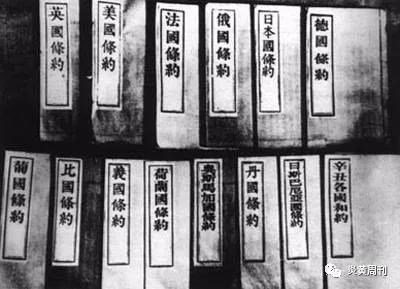 英國條約
美國條約
法國條約
俄國條約
日本國條約
德國條約
葡國條約
比國條約
義國條約
荷蘭國條約
奧斯馬加國條約
丹國條約
日斯巴尼亞國條約
辛丑各國和約
炎黄周刊